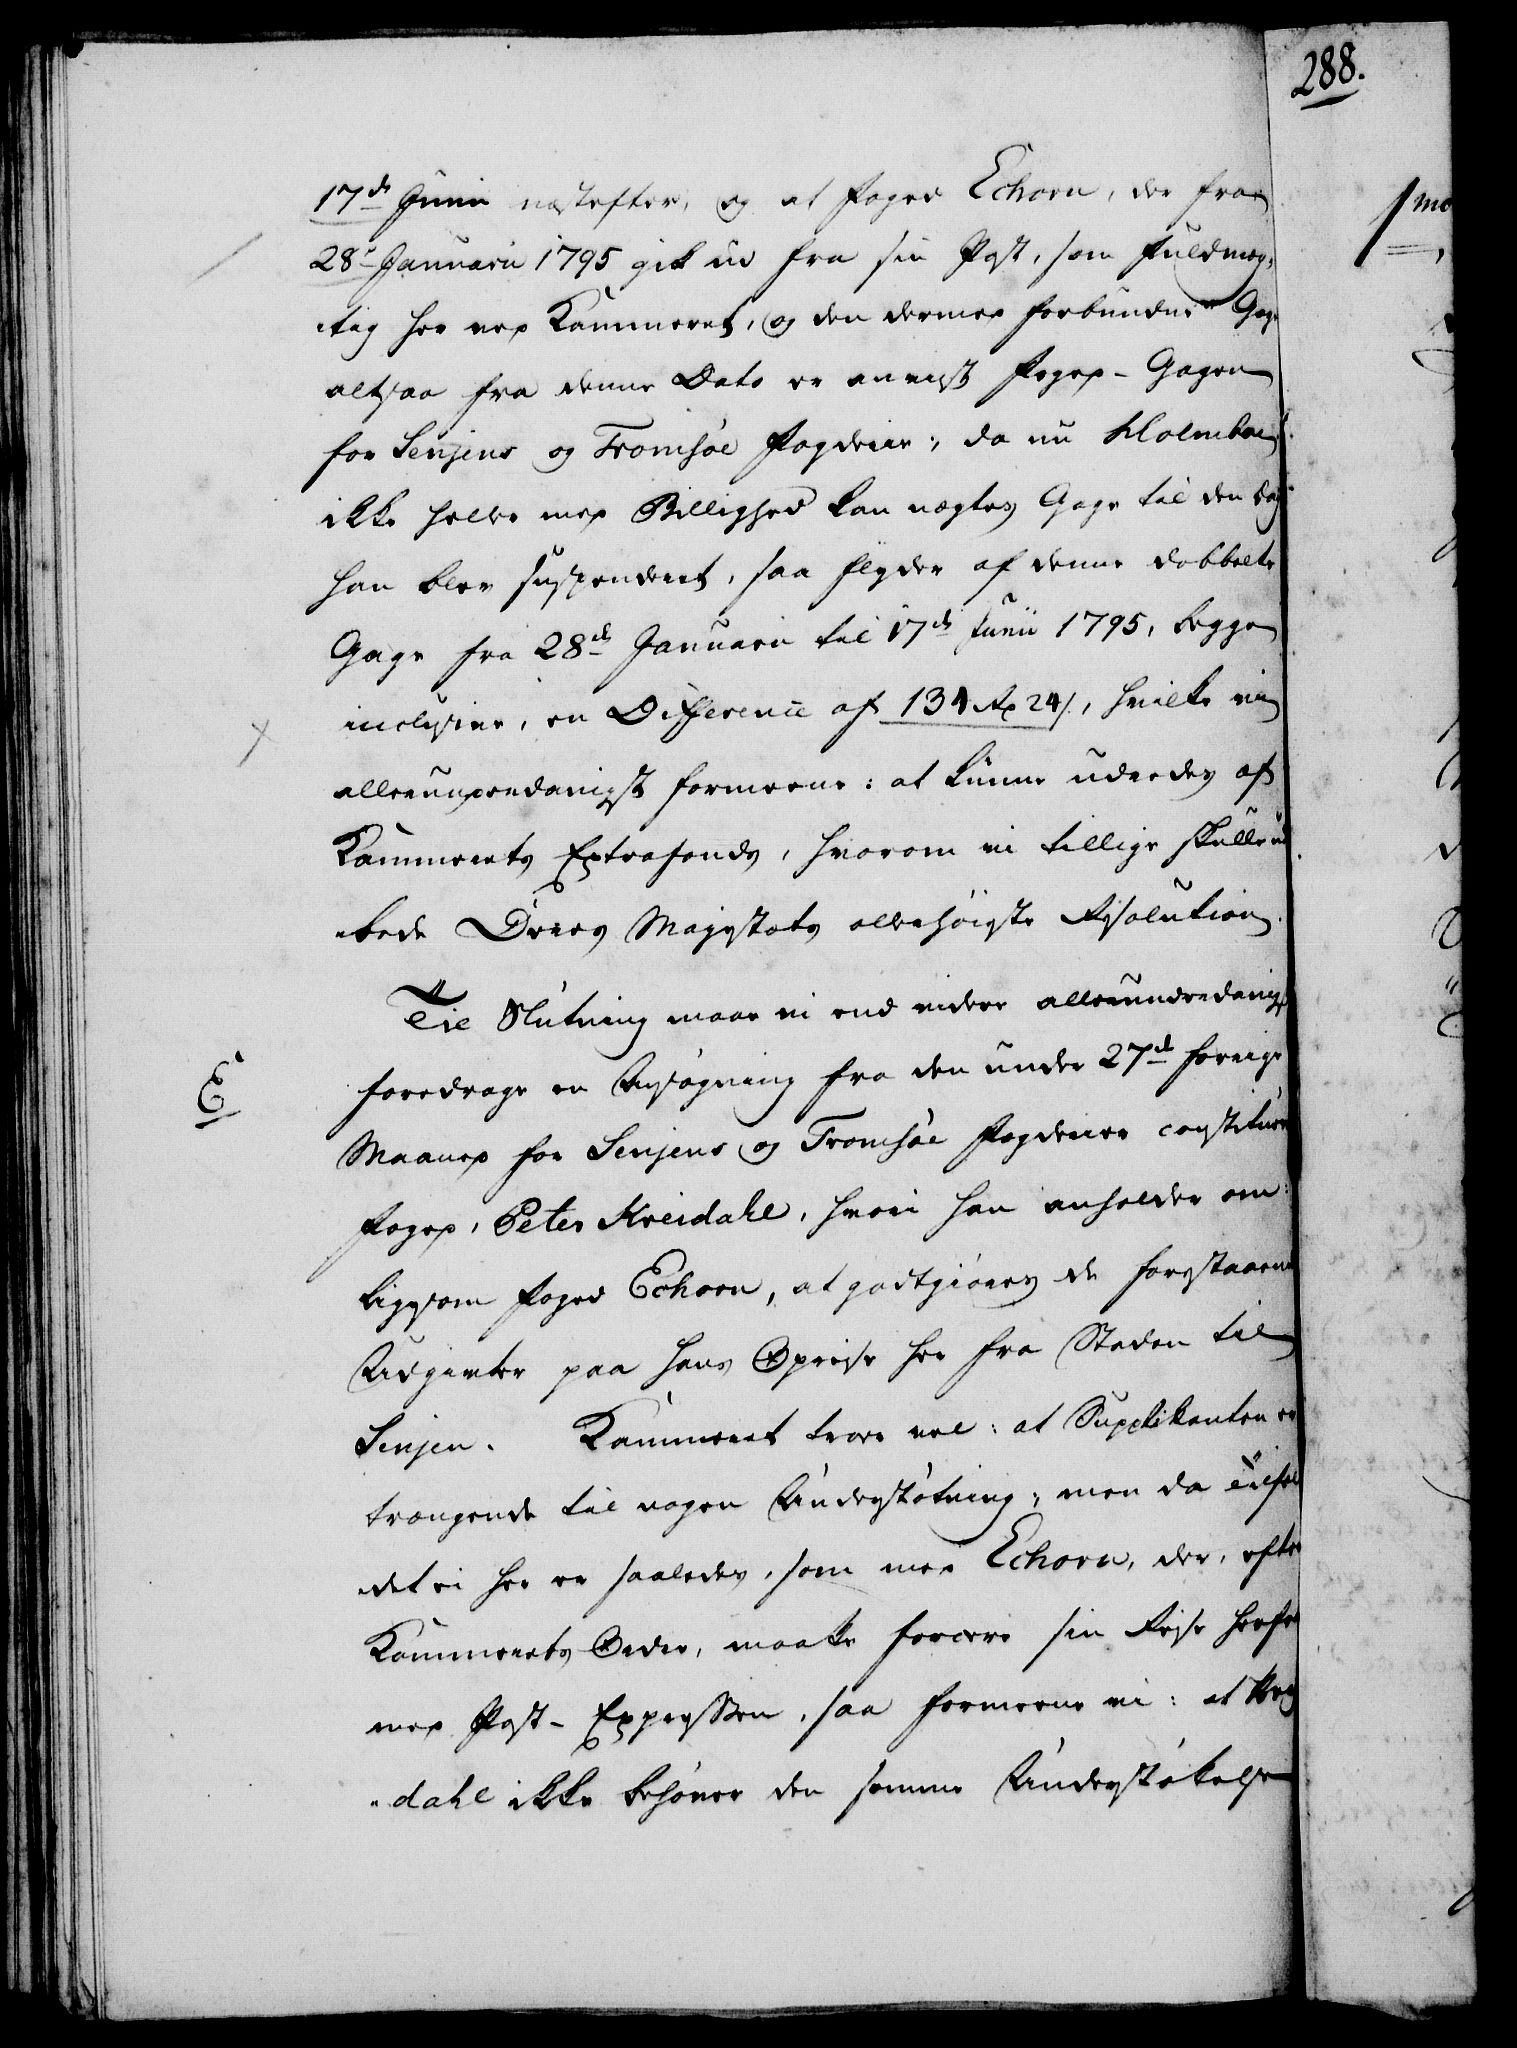 288.
17d Junii næstefter, og at Foged Echorn, der fra
28d Januarii 1795 gik ud fra sin Post, som Fuldmæg-
tig her ved Kammeret, og den dermed forbundne Gage
altsaa fra denne Dato er anvist Foged-Gagen
for Senjens og Tromsøe Fogderier; da nu Holmboe
ikke heller med Billighed kan nægtes Gage til den Dag
han blev suspenderet, saa flyder af denne dobbelte
Gage fra 28d Januarii til 17d Junii 1795, begge
inclusive, en Difference af 134 Rd 24 s, hvilke vi
allerunderdanigst formeene: at kunne udredes af
Kammerets Extrafonds, hvorom vi tillige skulle ud-
bede Deres Majestæts allerhøigste Resolution.
Til Slutning maae vi end videre allerunderdanigst
E
foredrage en Ansøgning fra den under 27d forrige
Maaned for Senjens og Tromsøe Fogderier constituerede
Foged, Peter Kreidahl, hvori han anholder om:
ligesom Foged Echorn, at godtgiøres de forestaaende
Udgivter paa hans Opreise her fra Staden til
Senjen. Kammeret troer vel: at Supplikanten er
trængende til nogen Understøtning; men da Tilfæl-
det ei her er saaledes, som med Echorn, der, efter
Kammerets Order, maatte forcere sin Reise herfra
med Post-Expressen, saa formeene vi: at Krei-
dahl ikke behøver den samme Understøttelse
1mo